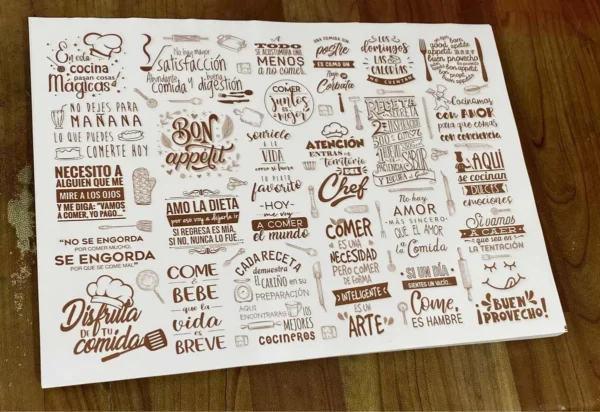 En esta
cocina
pasan cosas
Mágicas
No hay mayor
Satisfacción
Abundante
comida
y buena
digestión
A
TODO
SE ACOSTUMBRA UNO,
MENOS
A no comer.
UNA COMIDA SIN
postre
ES COMO UN
Traje
sin
Corbata
LOS
domingos
LAS
CALORÍAS
NO CUENTAN
bon
appétit
good
bon appétit
buen provecho
NO DEJES PARA
MAÑANA
LO QUE PUEDES
COMERTE HOY
BON
appétit
COMER
juntos
es
mejor
SONRÍELE
A LA
VIDA
como si fuera
TU PLATO
favorito
ATENCIÓN
ENTRAS EN
territorio
DEL
Chef
RECETA
Cocinamos
CON AMOR
para que comas
CON CONCIENCIA
NECESITO A
ALGUIEN QUE ME
MIRE A LOS OJOS
Y ME DIGA: "VAMOS
A COMER, YO PAGO..."
AMO LA DIETA
por eso voy a dejarla ir
SI REGRESA ES MÍA,
SI NO, NUNCA LO FUE...
-HOY-
me voy
A COMER
el mundo
No hay
AMOR
-MÁS SINCERO-
QUE EL AMOR
a la
Comida
AQUÍ
se cocinan
DULCES
emociones
"NO SE ENGORDA
POR COMER MUCHO,
SE ENGORDA
POR QUE SE COME MAL"
COME
& BEBE
que la
vida
es
BREVE
CADA RECETA
demuestra
EL CARIÑO en su
PREPARACIÓN
AQUÍ
ENCONTRARÁS
LOS
MEJORES
COCINEROS
COMER
ES UNA
NECESIDAD
PERO COMER
DE FORMA
INTELIGENTE
ES UN
ARTE
SI UN DÍA
SIENTES UN VACÍO...
Come,
ES HAMBRE
Si vamos
A CAER
que sea en
LA TENTACIÓN
Disfruta
DE TU
comida
¡BUEN
PROVECHO!